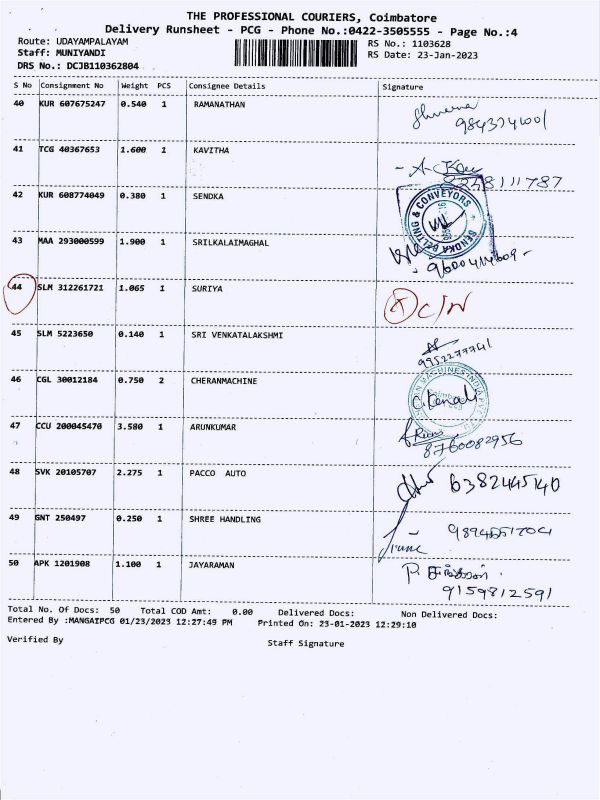 THE PROFESSIONAL COURIERS, Coimbatore
Delivery Runsheet - PCG - Phone No.:0422-3505555 - Page No.:4
Route: UDAYAMPALAYAM
RS No.: 1103628
Staff: MUNIYANDI
RS Date: 23-Jan-2023
DRS No.: DCJB110362804
S No Consignment No Weight PCS Consignee Details Signature
40 KUR 607675247 0.540 1 RAMANATHAN
41 TCG 40367653 1.600 1 KAVITHA
42 KUR 608774049 0.380 1 SENDKA
SENDKA BELTING & CONVEYORS
43 MAA 293000599 1.900 1 SRILKALAIMAGHAL
9600414609
44 SLM 312261721 1.065 1 SURIYA
45 SLM 5223650 0.140 1 SRI VENKATALAKSHMI
46 CGL 30012184 0.750 2 CHERANMACHINE
47 CCU 200045470 3.580 1 ARUNKUMAR
8760082956
48 SVK 20105707 2.275 1 PACCO AUTO
6382445140
49 GNT 250497 0.250 1 SHREE HANDLING
50 APK 1201908 1.100 1 JAYARAMAN
9159812591
Total No. Of Docs: 50 Total COD Amt: 0.00 Delivered Docs: Non Delivered Docs:
Entered By :MANGAIPCG 01/23/2023 12:27:49 PM Printed On: 23-01-2023 12:29:10
Verified By Staff Signature